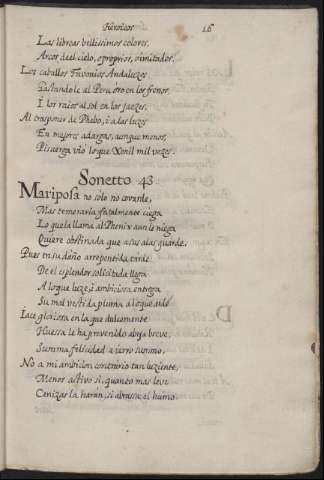 Heroicos 26
Las libreas bellissimas colores,
Arcos del cielo, o proprios, o imitados.
Los caballos Favonios Andaluzes
Gastandole al Perú oro en los frenos,
I los raios al sol en los jaezes.
Al trasponer de Phebo, i a las luzes
En mejores adargas, aunque menos,
Pisuerga vio lo que Xenil mil vezes.
Sonetto 43
Mariposa no solo no covarde,
Mas temeraria, fatalmente ciega
Lo que la llama al Phenix aun le niega
Quiere obstinada que a sus alas guarde.
Pues en su daño arrepentida tarde
De el esplendor solicitada llega
A lo que luze, i ambiciosa entrega
Su mal vestida pluma a lo que arde
Iace gloriosa en la que dulcemente
Huessa le ha prevenido abeja breve,
Summa felicidad a ierro summo.
No a mi ambicion contrario tan luziente,
Menos activo si, quanto mas leve
Cenizas la haran, si abrasa el humo.